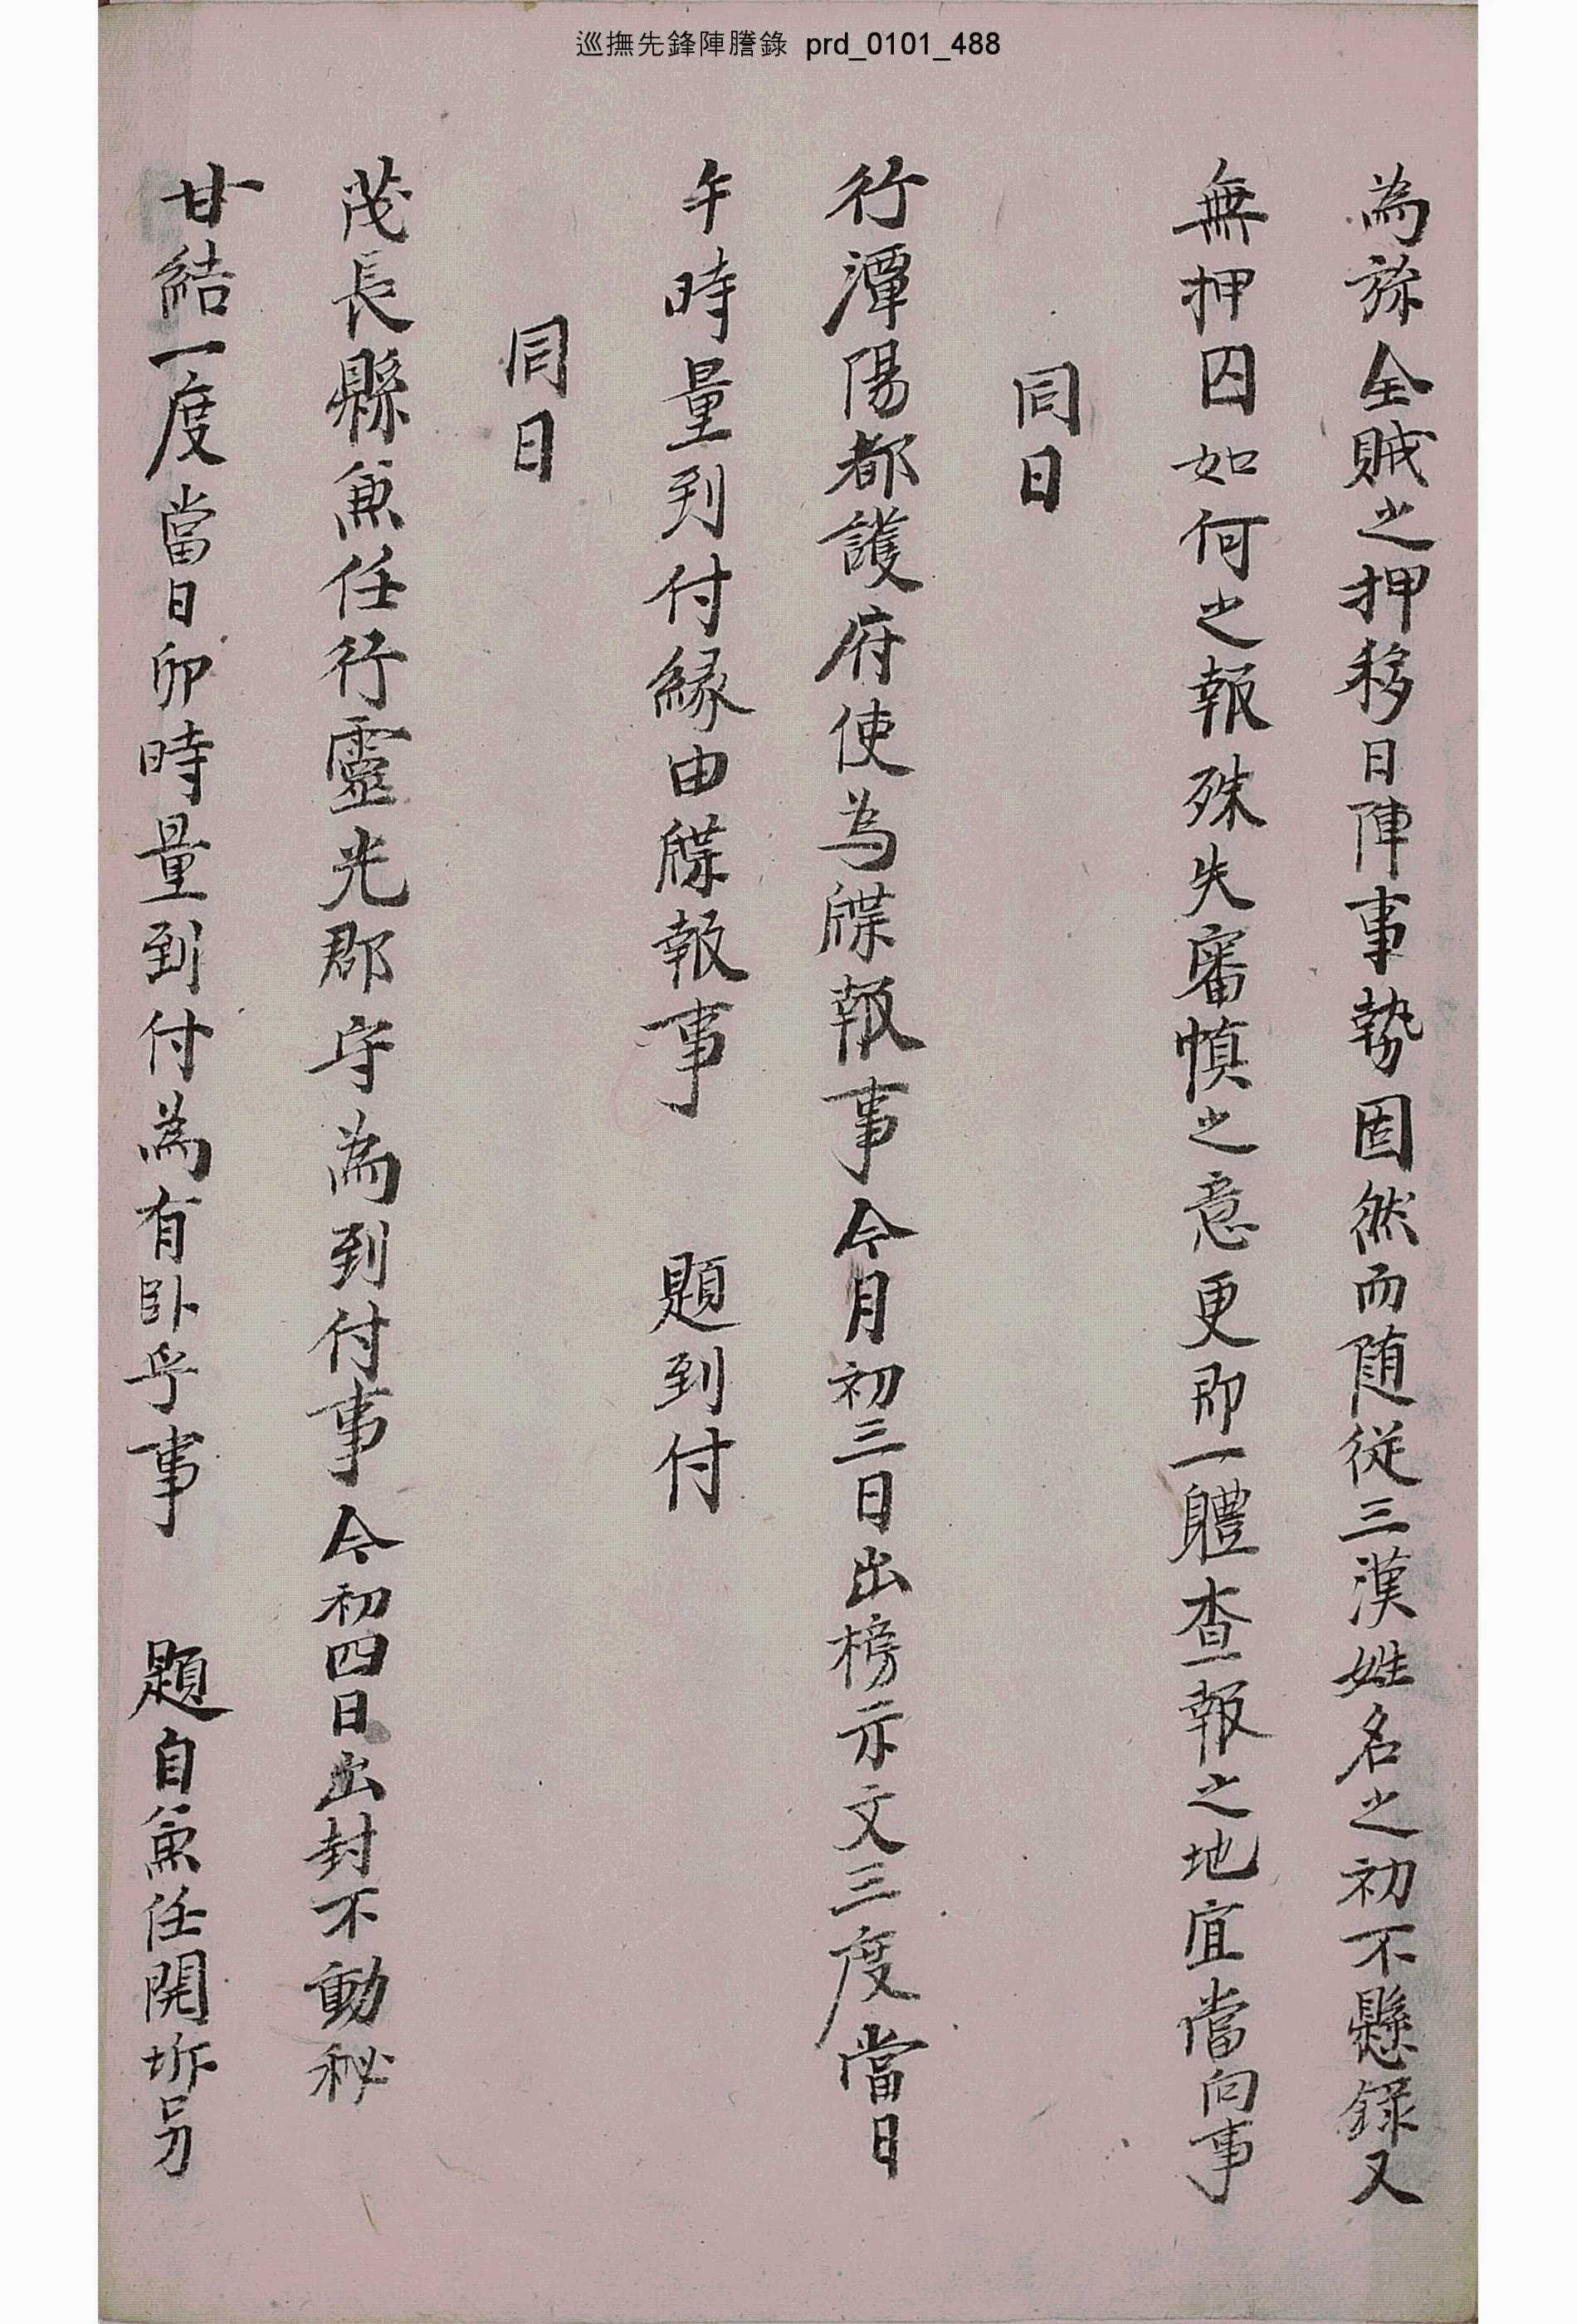 巡撫先鋒陣謄錄 prd_0101_488
為旀全賊之押移日陣事勢固然而随從三漢姓名之初不懸錄又
無押囚如何之報殊失審愼之意更卽一軆查報之地宜當向事
同日
行潭陽都護府使為牒報事今月初三日出榜示文三度當日
午時量到付緣由牒報事 題到付
同日
茂長縣兼任行靈光郡守為到付事今初四日出封不動秘
甘結一度當日卯時量到付為有臥乎事 題自兼任開坼另